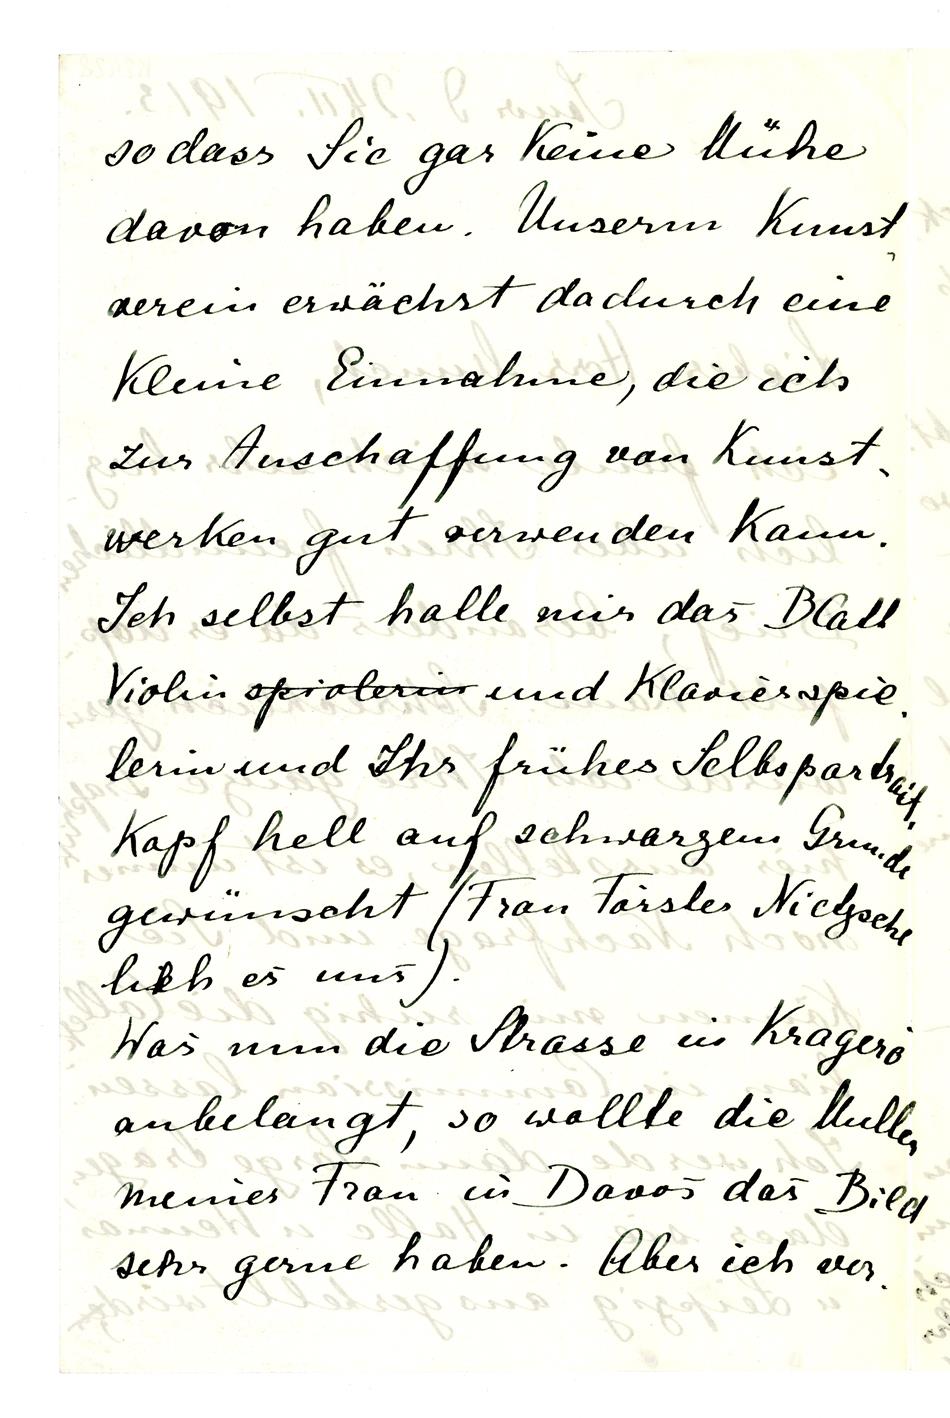 sodass Sie gar keine Mühe
davon haben. Unserm Kunst-
verein erwächst dadurch eine
kleine Einnahme, die ich
zur Anschaffung von Kunst-
werken gut verwenden kann.
Ich selbst hatte mir das Blatt
Violin spielerin und Klavierspie-
lerin und Ihr frühes Selbsportrait,
Kopf hell auf schwarzem Grunde
gewünscht (Frau Förster Nietzsche
lieh es uns).
Was nun die Strasse in Kragerö
anbelangt, so wollte die Mutter
meiner Frau in Davos das Bild
sehr gerne haben. Aber ich ver-